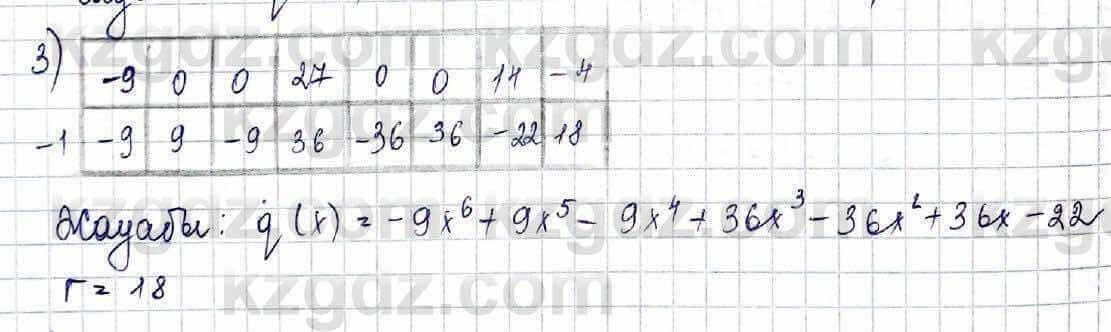 3)
-9 0 0 27 0 0 14 -4
-1 -9 9 -9 36 -36 36 -22 18
Жауабы: q(x) = -9x⁶ + 9x⁵ - 9x⁴ + 36x³ - 36x² + 36x - 22
r = 18
kzgdz.com